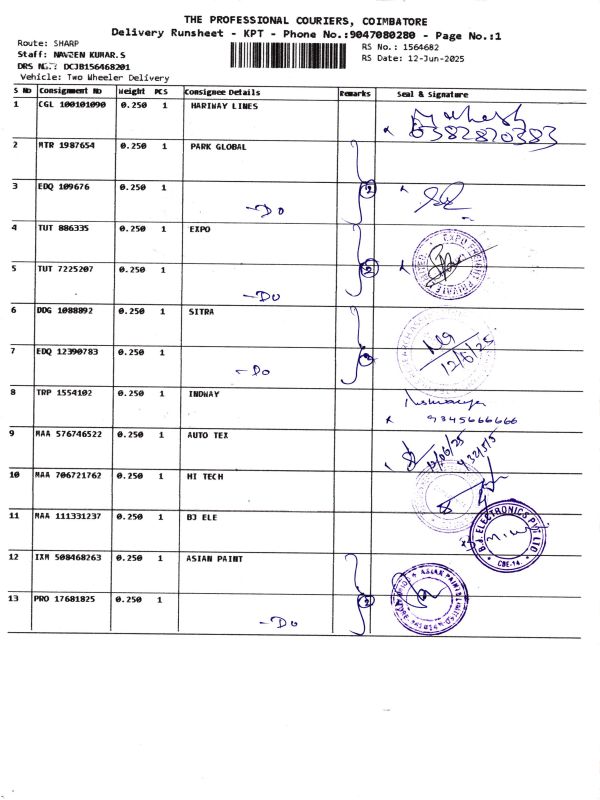 THE PROFESSIONAL COURIERS, COIMBATORE
Delivery Runsheet - KPT - Phone No.:9047080280 - Page No.:1
Route: SHARP
RS No.: 1564682
Staff: NAVEEN KUMAR.S
RS Date: 12-Jun-2025
DRS No.: DCJB156468201
Vehicle: Two Wheeler Delivery
S No Consignment No Weight PCS Consignee Details Remarks Seal & Signature
1 CGL 100101090 0.250 1 HARIWAY LINES
2 MTR 1987654 0.250 1 PARK GLOBAL
3 EDQ 109676 0.250 1 -Do 2
4 TUT 886335 0.250 1 EXPO
5 TUT 7225207 0.250 1 -Do 2
6 DDG 1088892 0.250 1 SITRA
12/6/25
7 EDQ 12390783 0.250 1 -Do 2
8 TRP 1554102 0.250 1 INDWAY
9345666666
9 MAA 576746522 0.250 1 AUTO TEX
12/06/25
10 MAA 706721762 0.250 1 HI TECH
11 MAA 111331237 0.250 1 BJ ELE
B.J. ELECTRONICS PVT LTD
CBE-14.
12 IXM 508468263 0.250 1 ASIAN PAINT
13 PRO 17681825 0.250 1 -Do 2